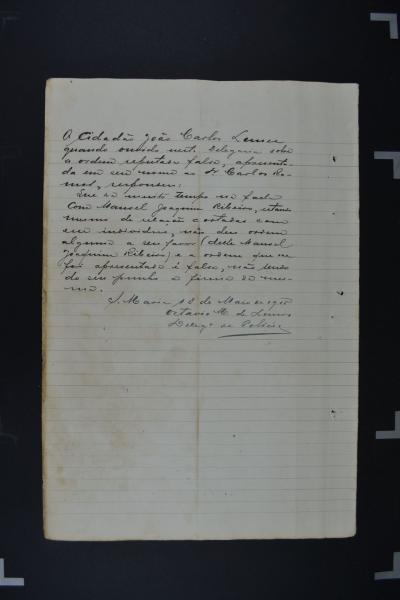 O Cidadão João Carlos Lenser
quando ouvido nest. Delegacia sobre
a ordem reputada falsa, apresenta-
da em seu nome ao Sr Carlos Ra-
mos, respondeu:
Que ha muito tempo não falla
com Manoel Joaquim Ribeiro, estando
mesmo de relações cortadas com
esse individuo, não deu ordem
alguma a seu favor (deste Manoel
Joaquim Ribeiro) e a ordem que me
foi apresentada é falsa, não sendo
do seu punho a firma da mes-
ma.
S. Maria, 12 de Março 191
Octavio M. de Lemos
Deleg.º de Policia